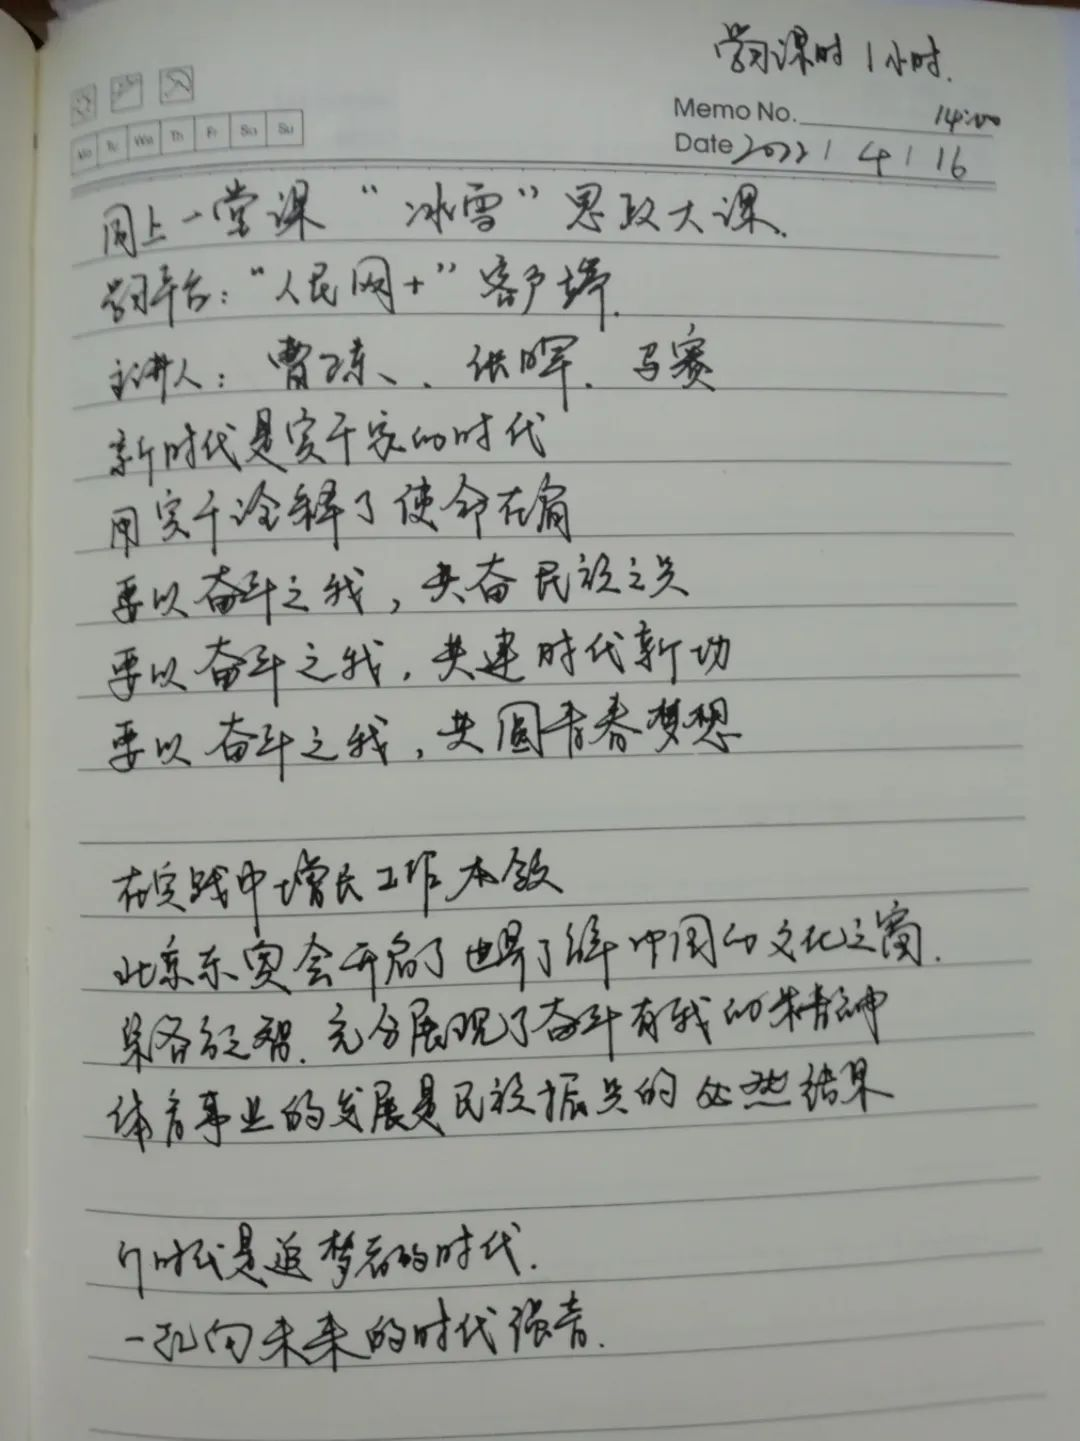 学习课时 1小时.
Mo Tu We Th Fr Sa Su
Memo No. 14:00
Date 2022 / 4 / 16
同上一堂课 “冰雪”思政大课.
学习平台：“人民网+”客户端.
主讲人：曹琼、张晖、马赛
新时代是实干家的时代
用实干诠释了使命在肩
要以奋斗之我，共奋民族之兴
要以奋斗之我，共建时代新功
要以奋斗之我，共圆青春梦想
在实践中增长工作本领
北京冬奥会开启了世界了解中国的文化之窗.
充分展现了奋斗有我的精神
体育事业的发展是民族振兴的必然结果
时代是追梦者的时代.
一起向未来的时代强音.